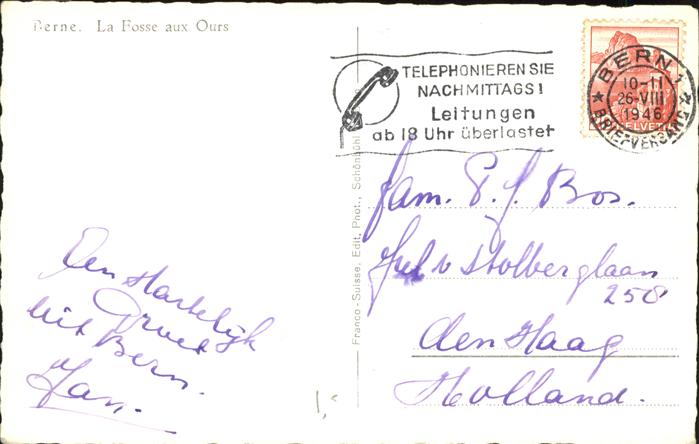 Berne. La Fosse aux Ours
TELEPHONIEREN SIE
NACHMITTAGS!
Leitungen
ab 18 Uhr überlastet
BERN 1
10-11
26·VIII
1946
BRIEFVERSAND
HELVETIA
Franco-Suisse, Edit. Phot., Schönbühl
Fam. P. J. Bos.
Jul v Stolberglaan
258
den Haag
Holland.
Een Hartelijk
Groet
uit Bern.
v/
Jan.
1,-